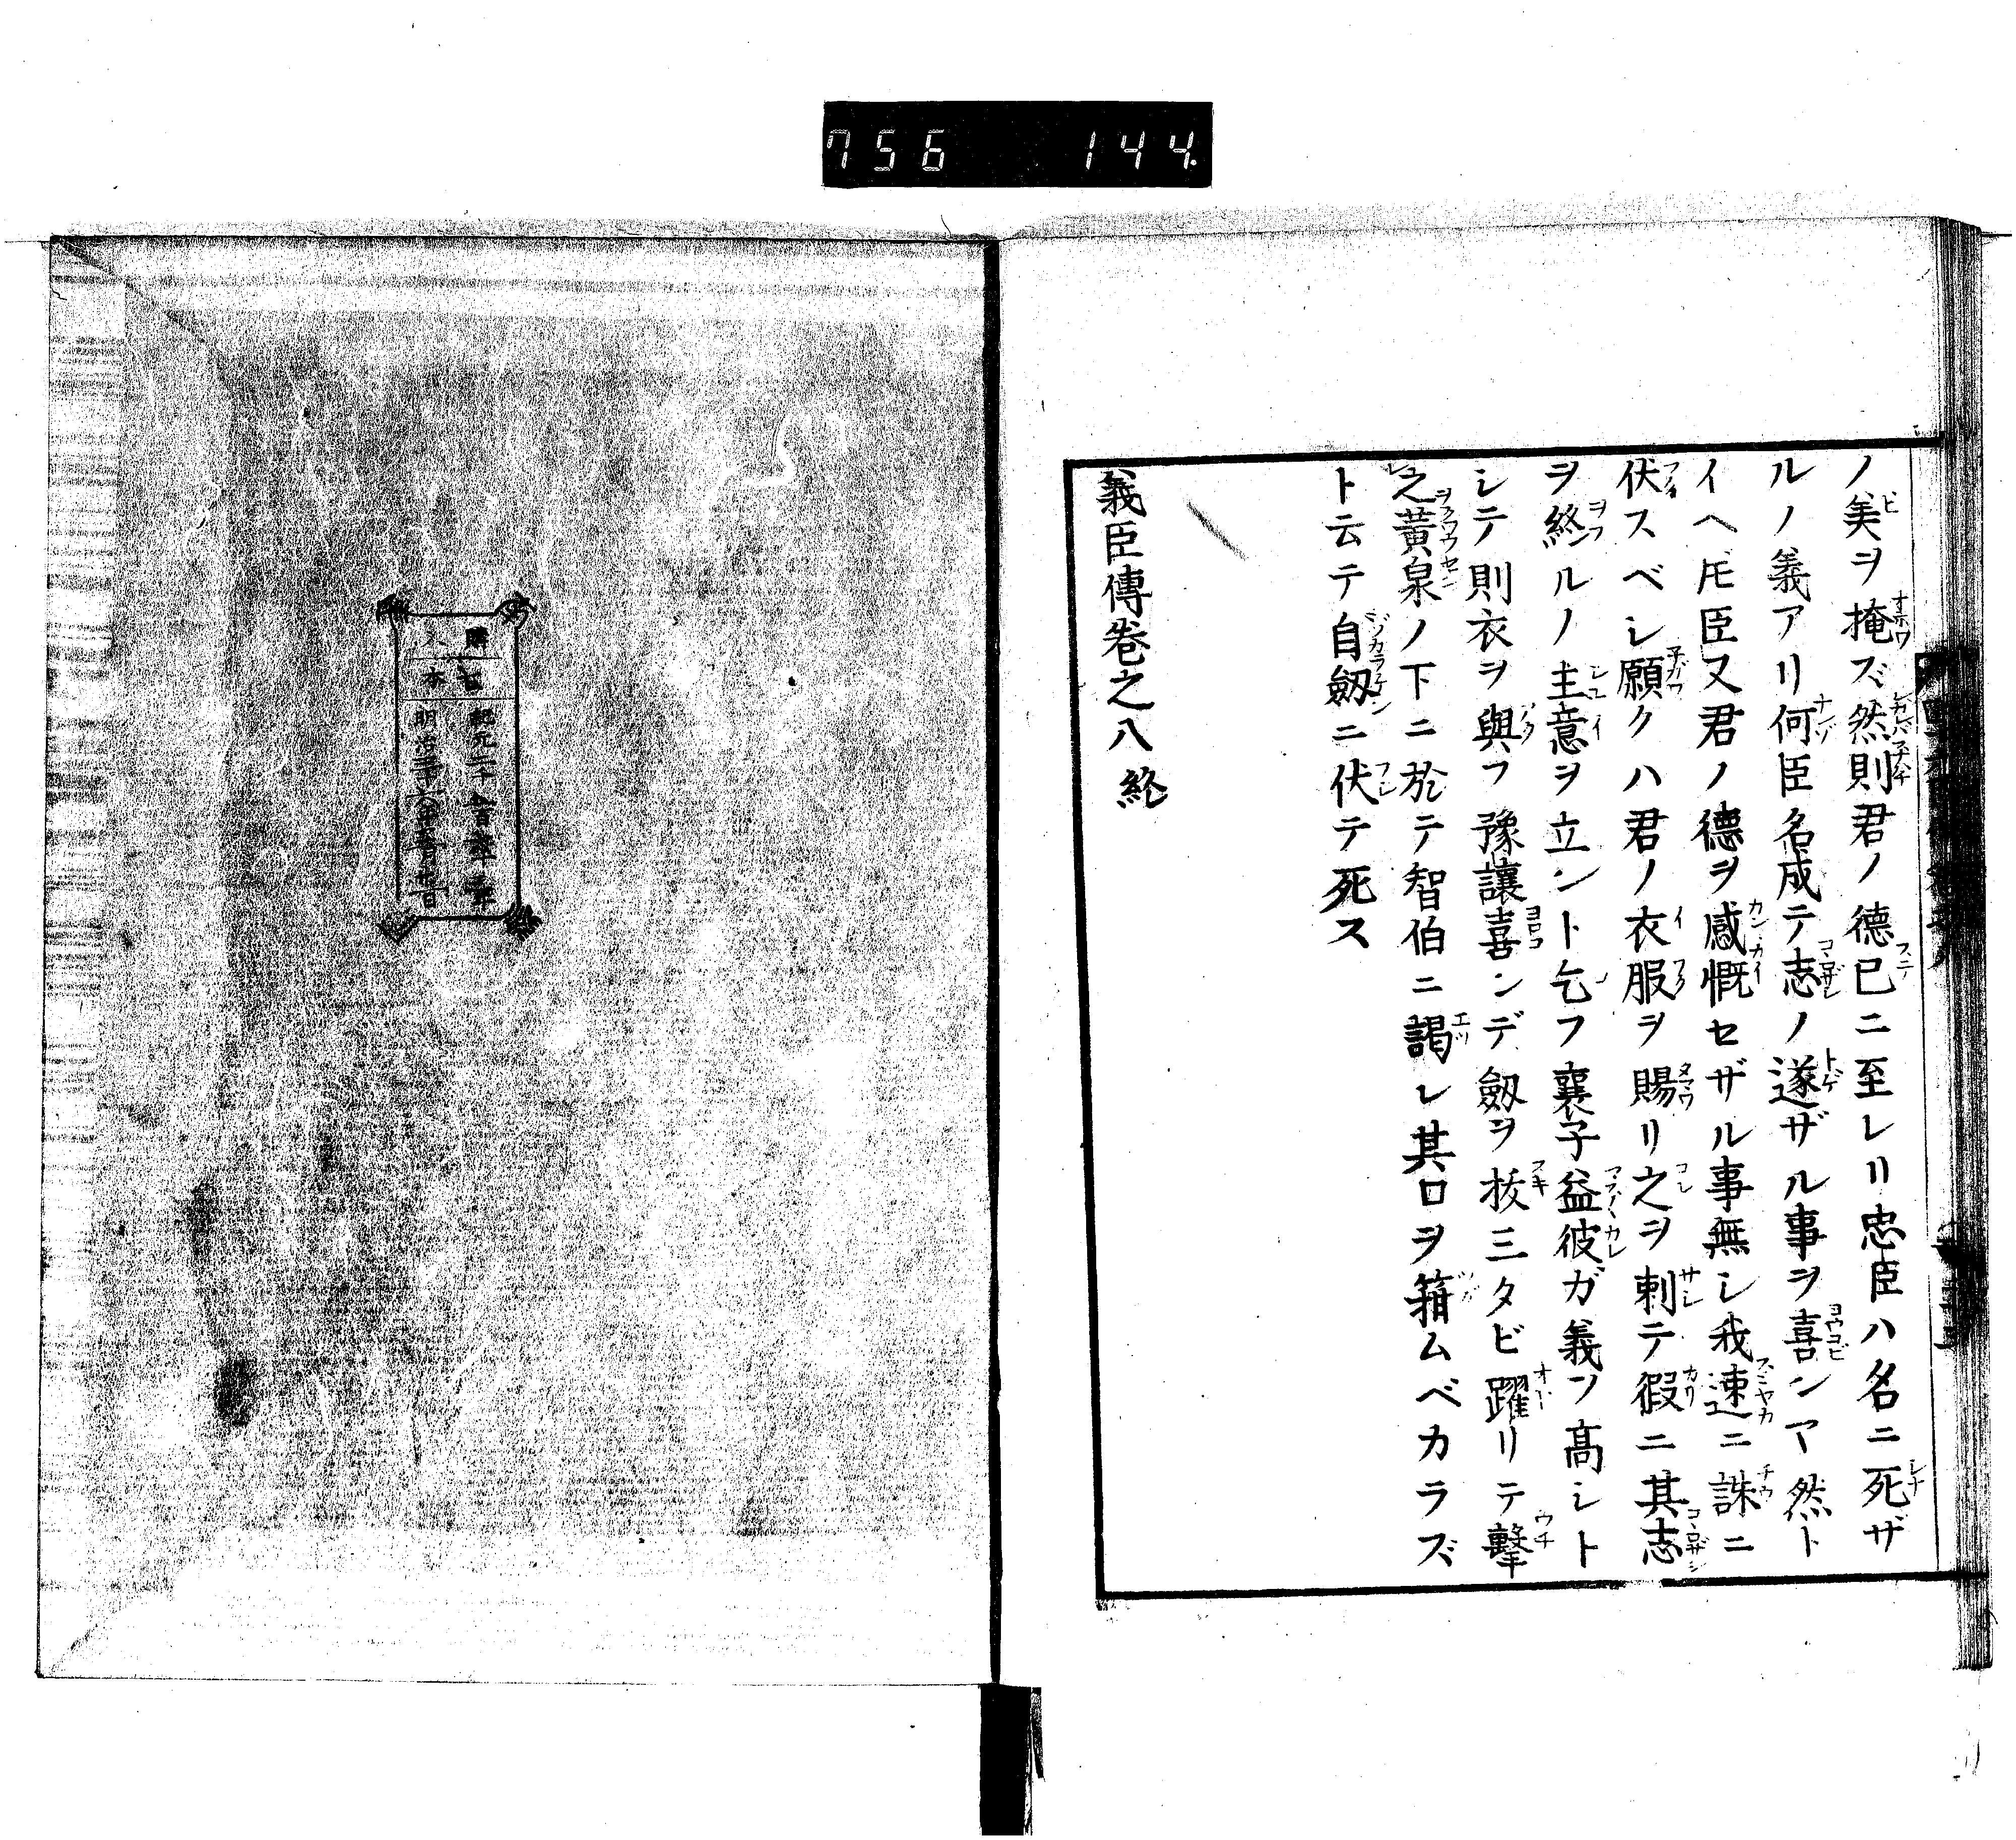 756 144.
ノ美ヲ掩ズ然則君ノ德已ニ至レリ忠臣ハ名ニ死ザ
ルノ義アリ何臣名成テ志ノ遂ザル事ヲ喜ンヤ然ト
イヘ𪜈臣又君ノ德ヲ感慨セザル事無シ我速ニ誅ニ
伏スベシ願クハ君ノ衣服ヲ賜リ之ヲ刺テ假ニ其志
ヲ終ルノ主意ヲ立ント乞フ襄子益彼ガ義ヲ高シト
シテ則衣ヲ與フ豫讓喜ンデ劔ヲ拔三タビ躍リテ擊
之黃泉ノ下ニ於テ智伯ニ謁シ其口ヲ箝ムベカラズ
ト云テ自劔ニ伏テ死ス
義臣傳卷之八終
購
本
明治